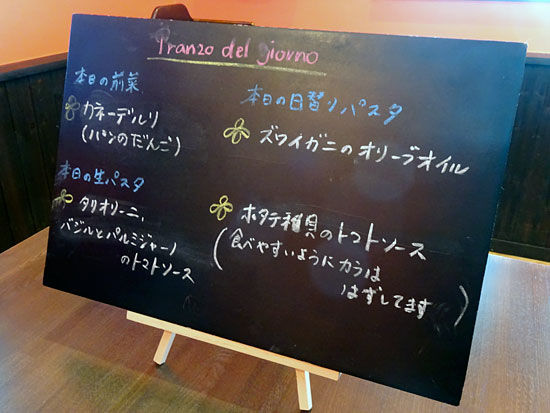 Pranzo del giorno
本日の前菜
カネーデルリ
(パンのだんご)
本日の生パスタ
タリオリーニ、
バジルとパルミジャーノ
のトマトソース
本日の日替りパスタ
ズワイガニのオリーブオイル
ホタテ稚貝のトマトソース
(食べやすいようにカラは
はずしてます)